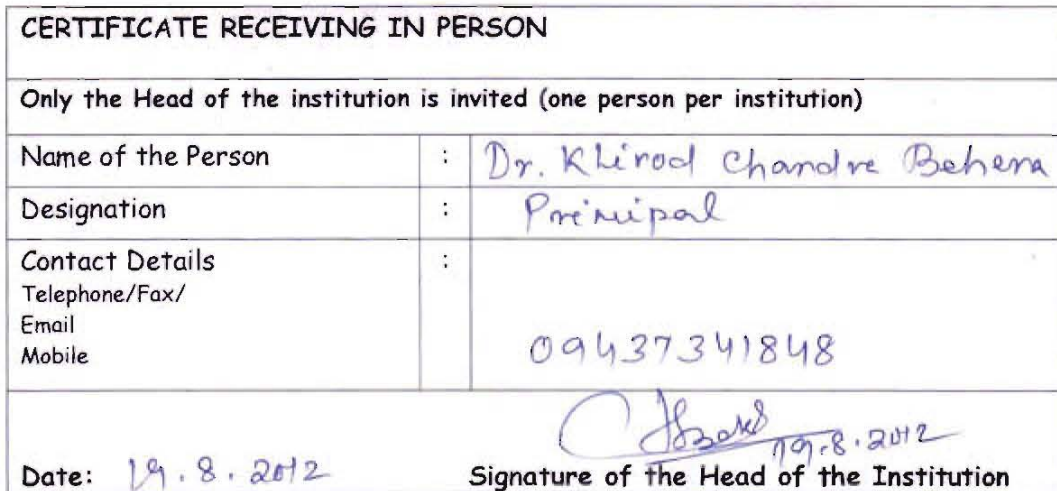 CERTIFICATE RECEIVING IN PERSON
Only the Head of the institution is invited (one person per institution)
Name of the Person : Dr. Khirod Chandra Behera
Designation : Principal
Contact Details :
Telephone/Fax/
Email
Mobile 09437341848
19.8.2012
Date: 19.8.2012 Signature of the Head of the Institution